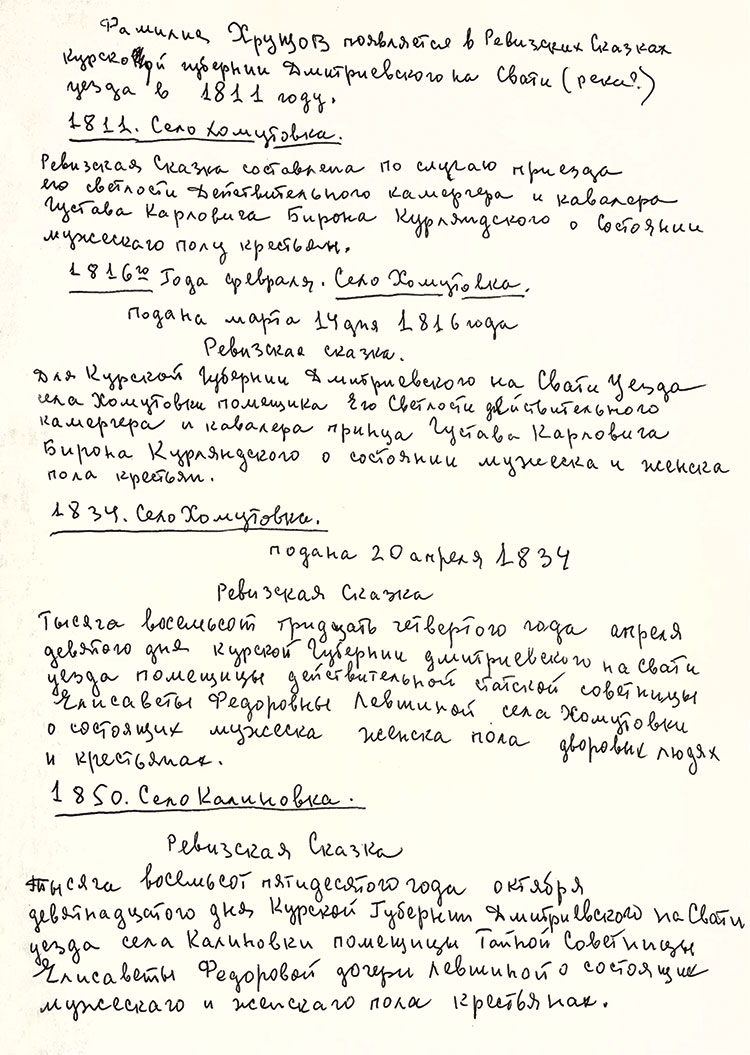 Фамилия Хрущов появляется в Ревизских Сказках
Курской губернии Дмитриевского на Свати (река?)
уезда в 1811 году.
1811. Село Хомутовка.
Ревизская Сказка составлена по случаю приезда
его светлости Действительного камергера и кавалера
Густава Карловича Бирона Курляндского о Состоянии
мужескаго полу крестьян.
1816го Года февраля. Село Хомутовка.
подана марта 14 дня 1816 года
Ревизская сказка.
Для Курской Губернии Дмитриевского на Свати Уезда
села Хомутовки помещика Его Светлости действительного
камергера и кавалера принца Густава Карловича
Бирона Курляндского о состоянии мужеска и женска
пола крестьян.
1834. Село Хомутовка.
подана 20 апреля 1834
Ревизская Сказка
Тысяча восемьсот тридцать четвертого года апреля
девятого дня Курской Губернии Дмитриевского на Свати
уезда помещицы действительной статской советницы
Елисаветы Федоровны Левшиной села Хомутовки
о состоящих мужеска женска пола дворовых людях
и крестьянах.
1850. Село Калиновка.
Ревизская Сказка
Тысяча восемьсот пятидесятого года октября
девятнадцатого дня Курской Губернии Дмитриевского на Свати
уезда села Калиновки помещицы Тайной Советницы
Елисаветы Федоровой дочери Левшиной о состоящих
мужескаго и женскаго пола крестьянах.